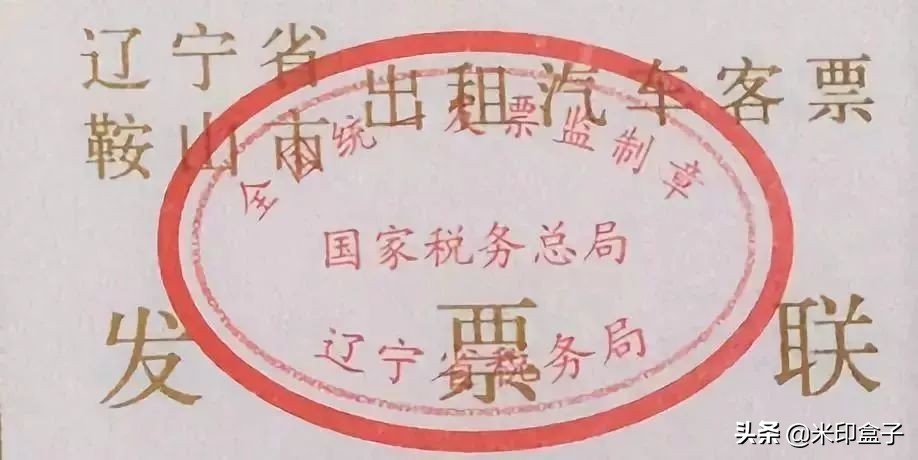 辽宁省
鞍山市
出租汽车客票
全国统一发票监制章
国家税务总局
辽宁省税务局
发票联
头条 @米印盒子